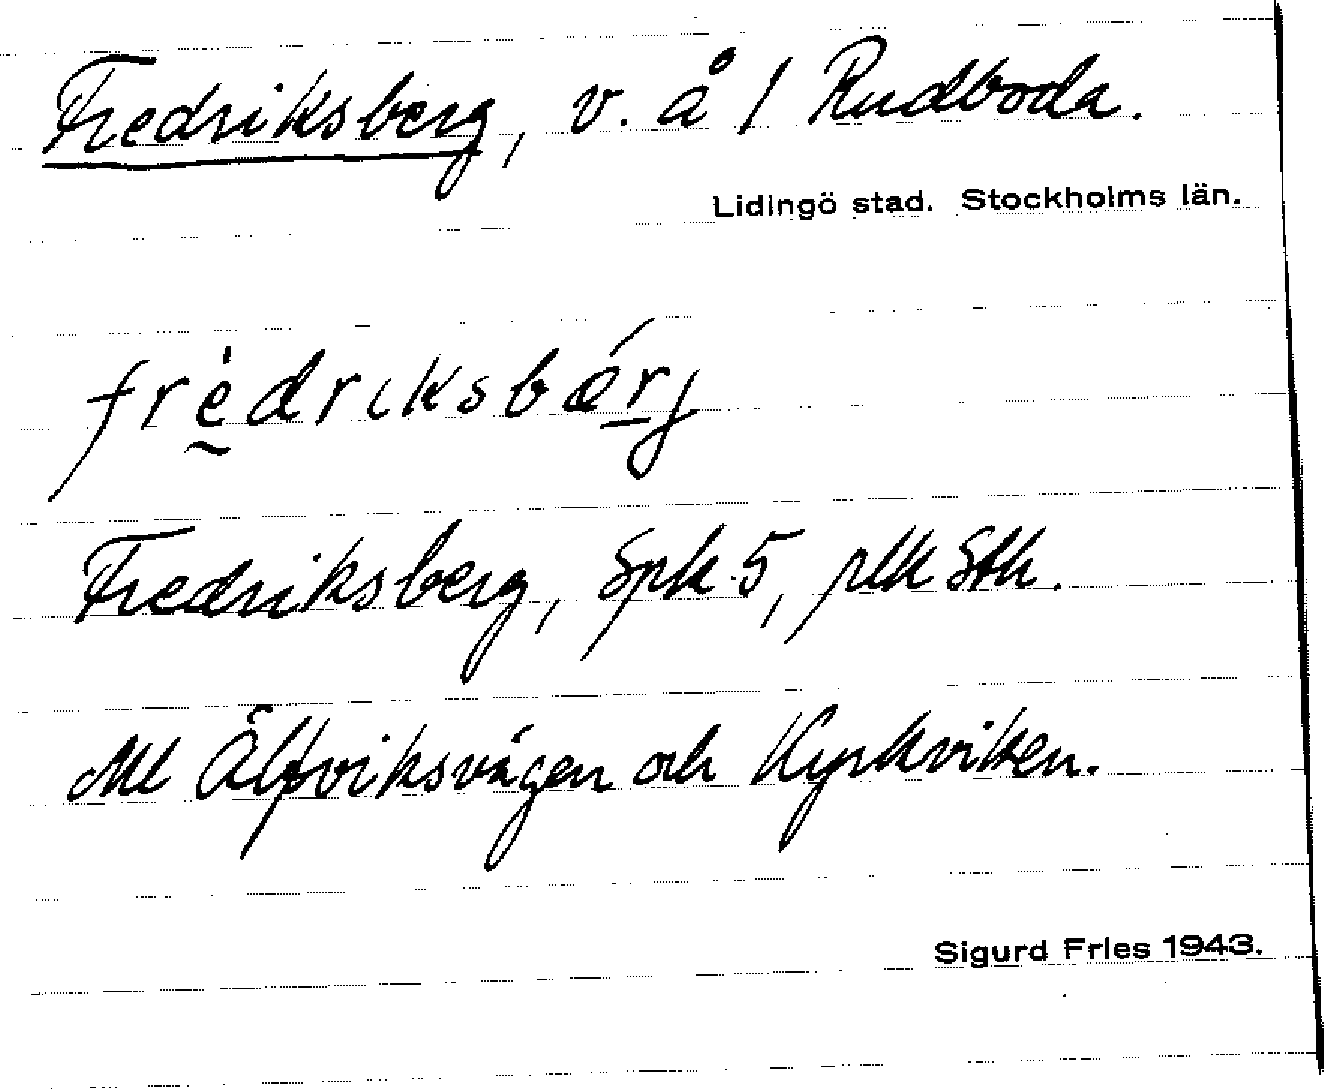 Fredriksberg, v. å / Rudboda.
Lidingö stad. Stockholms län.
frèdriksbǽrj
Fredriksberg, Spk 5, plk Sth.
Ml Älfviksvägen och Kyrkviken.
Sigurd Fries 1943.